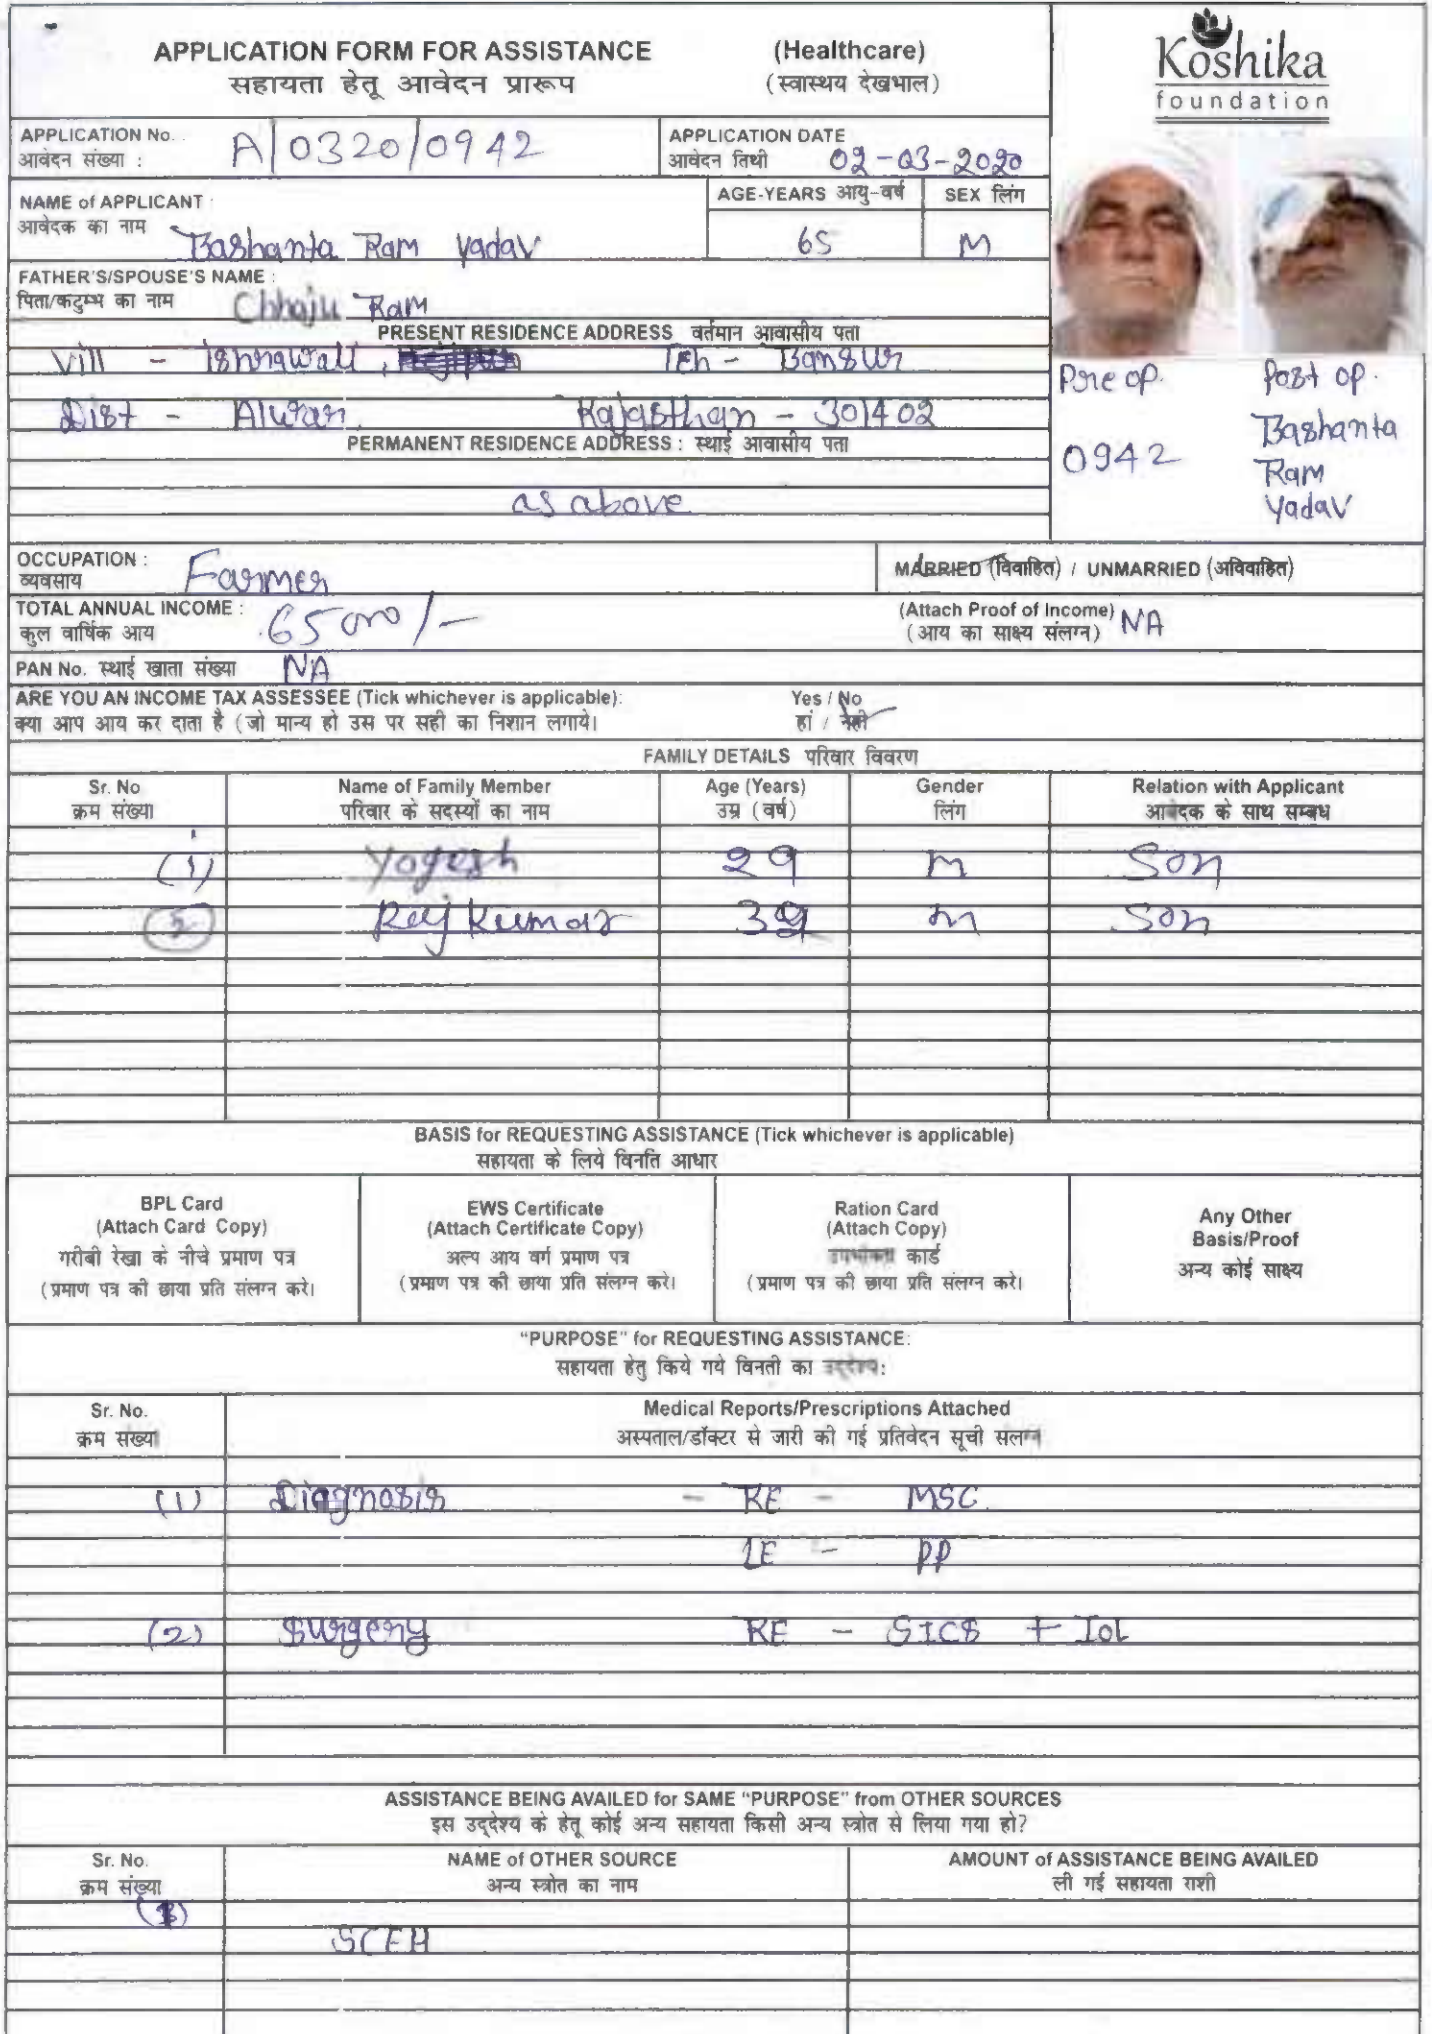 APPLICATION FORM FOR ASSISTANCE (Healthcare)
सहायता हेतू आवेदन प्रारूप (स्वास्थय देखभाल)
Koshika
foundation
APPLICATION No.
आवेदन संख्या : A/0320/0942
APPLICATION DATE
आवेदन तिथी 02-03-2020
NAME of APPLICANT :
आवेदक का नाम Bashanta Ram Yadav
AGE-YEARS आयु-वर्ष SEX लिंग
65 M
FATHER'S/SPOUSE'S NAME :
पिता/कटुम्भ का नाम Chhaju Ram
PRESENT RESIDENCE ADDRESS वर्तमान आवासीय पता
Vill - Teh - Bansur
Dist - Alwar Rajasthan - 301402
PERMANENT RESIDENCE ADDRESS : स्थाई आवासीय पता
as above
Pre op. Post op.
0942 Bashanta
Ram
Yadav
OCCUPATION :
व्यवसाय Farmer
MARRIED (विवाहित) / UNMARRIED (अविवाहित)
TOTAL ANNUAL INCOME :
कुल वार्षिक आय 65000/-
(Attach Proof of Income) NA
(आय का साक्ष्य संलग्न)
PAN No. स्थाई खाता संख्या NA
ARE YOU AN INCOME TAX ASSESSEE (Tick whichever is applicable): Yes / No
क्या आप आय कर दाता है (जो मान्य हो उस पर सही का निशान लगाये। हां / नही
FAMILY DETAILS परिवार विवरण
Sr. No Name of Family Member Age (Years) Gender Relation with Applicant
क्रम संख्या परिवार के सदस्यों का नाम उम्र (वर्ष) लिंग आवेदक के साथ सम्बध
(1) Yogesh 29 M Son
(2) Raj Kumar 39 M Son
BASIS for REQUESTING ASSISTANCE (Tick whichever is applicable)
सहायता के लिये विनति आधार
BPL Card
(Attach Card Copy)
गरीबी रेखा के नीचे प्रमाण पत्र
(प्रमाण पत्र की छाया प्रति संलग्न करे।
EWS Certificate
(Attach Certificate Copy)
अल्प आय वर्ग प्रमाण पत्र
(प्रमाण पत्र की छाया प्रति संलग्न करे।
Ration Card
(Attach Copy)
उपभोक्ता कार्ड
(प्रमाण पत्र की छाया प्रति संलग्न करे।
Any Other
Basis/Proof
अन्य कोई साक्ष्य
"PURPOSE" for REQUESTING ASSISTANCE:
सहायता हेतु किये गये विनती का उद्देश्य:
Sr. No. Medical Reports/Prescriptions Attached
क्रम संख्या अस्पताल/डॉक्टर से जारी की गई प्रतिवेदन सूची संलग्न
(1) Diagnosis - RE - MSC
LE - PP
(2) Surgery RE - SICS + IOL
ASSISTANCE BEING AVAILED for SAME "PURPOSE" from OTHER SOURCES
इस उद्देश्य के हेतू कोई अन्य सहायता किसी अन्य स्त्रोत से लिया गया हो?
Sr. No. NAME of OTHER SOURCE AMOUNT of ASSISTANCE BEING AVAILED
क्रम संख्या अन्य स्त्रोत का नाम ली गई सहायता राशी
(1)
SCEH